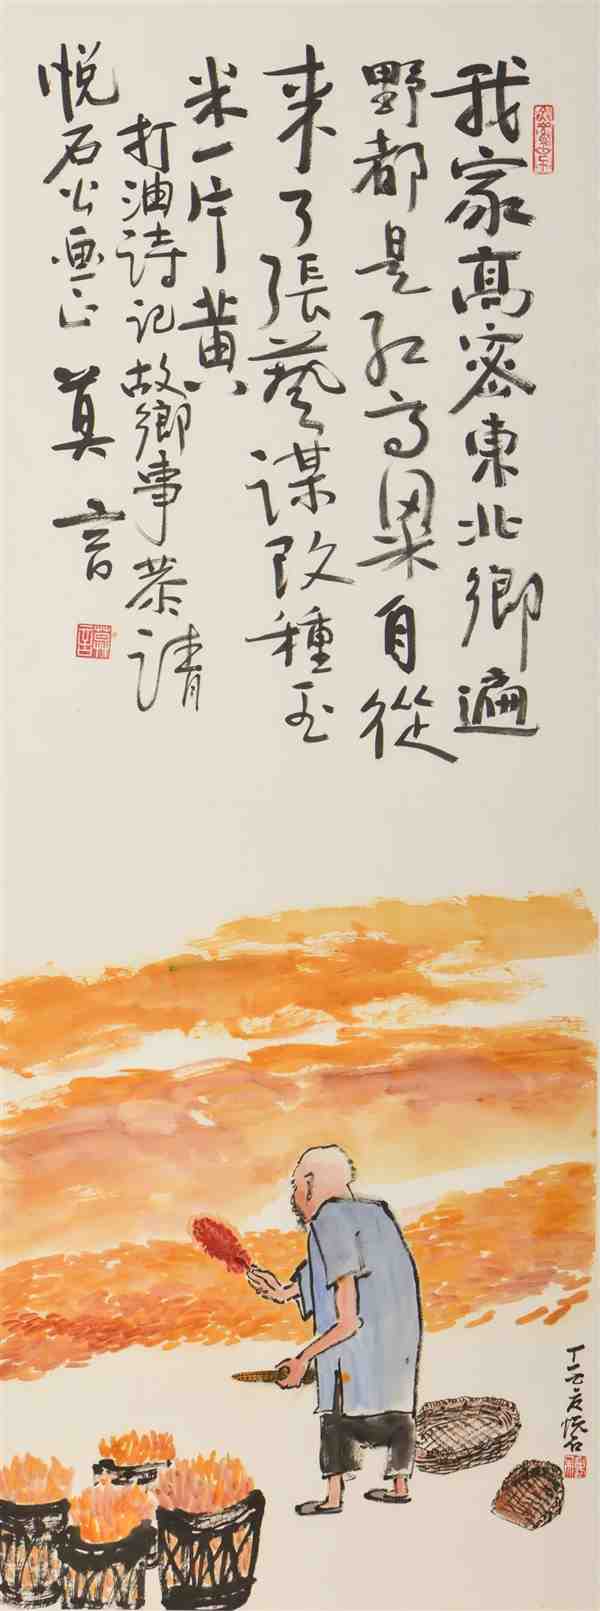 我家高密東北鄉遍
野都是紅高粱自從
来了張藝謀改種玉
米一片黄
打油詩记故鄉事恭請
悦石公画正 莫言
丁亥悦石